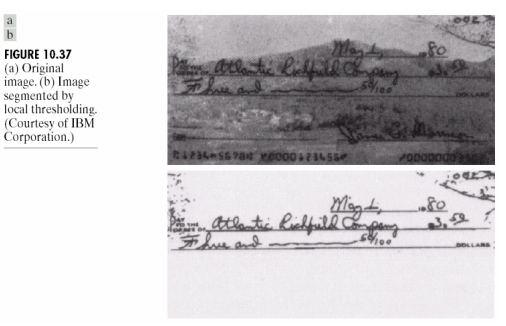 a
b
FIGURE 10.37
(a) Original
image. (b) Image
segmented by
local thresholding.
(Courtesy of IBM
Corporation.)
May 1, 1980
PAY TO THE ORDER OF Atlantic Richfield Company $3.50
Three and 50/100
DOLLARS
May 1, 1980
PAY TO THE ORDER OF Atlantic Richfield Company $3.50
Three and 50/100 DOLLARS